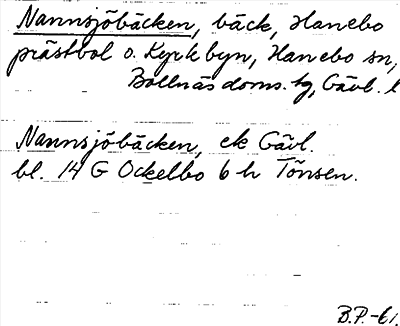 Nannsjöbäcken, bäck, Hanebo
prästbol o. Kyrkbyn, Hanebo sn,
Bollnäs doms. tg, Gävl. l
Nannsjöbäcken, ek Gävl.
bl. 14 G Ockelbo 6 h Tönsen.
B.P.-61.